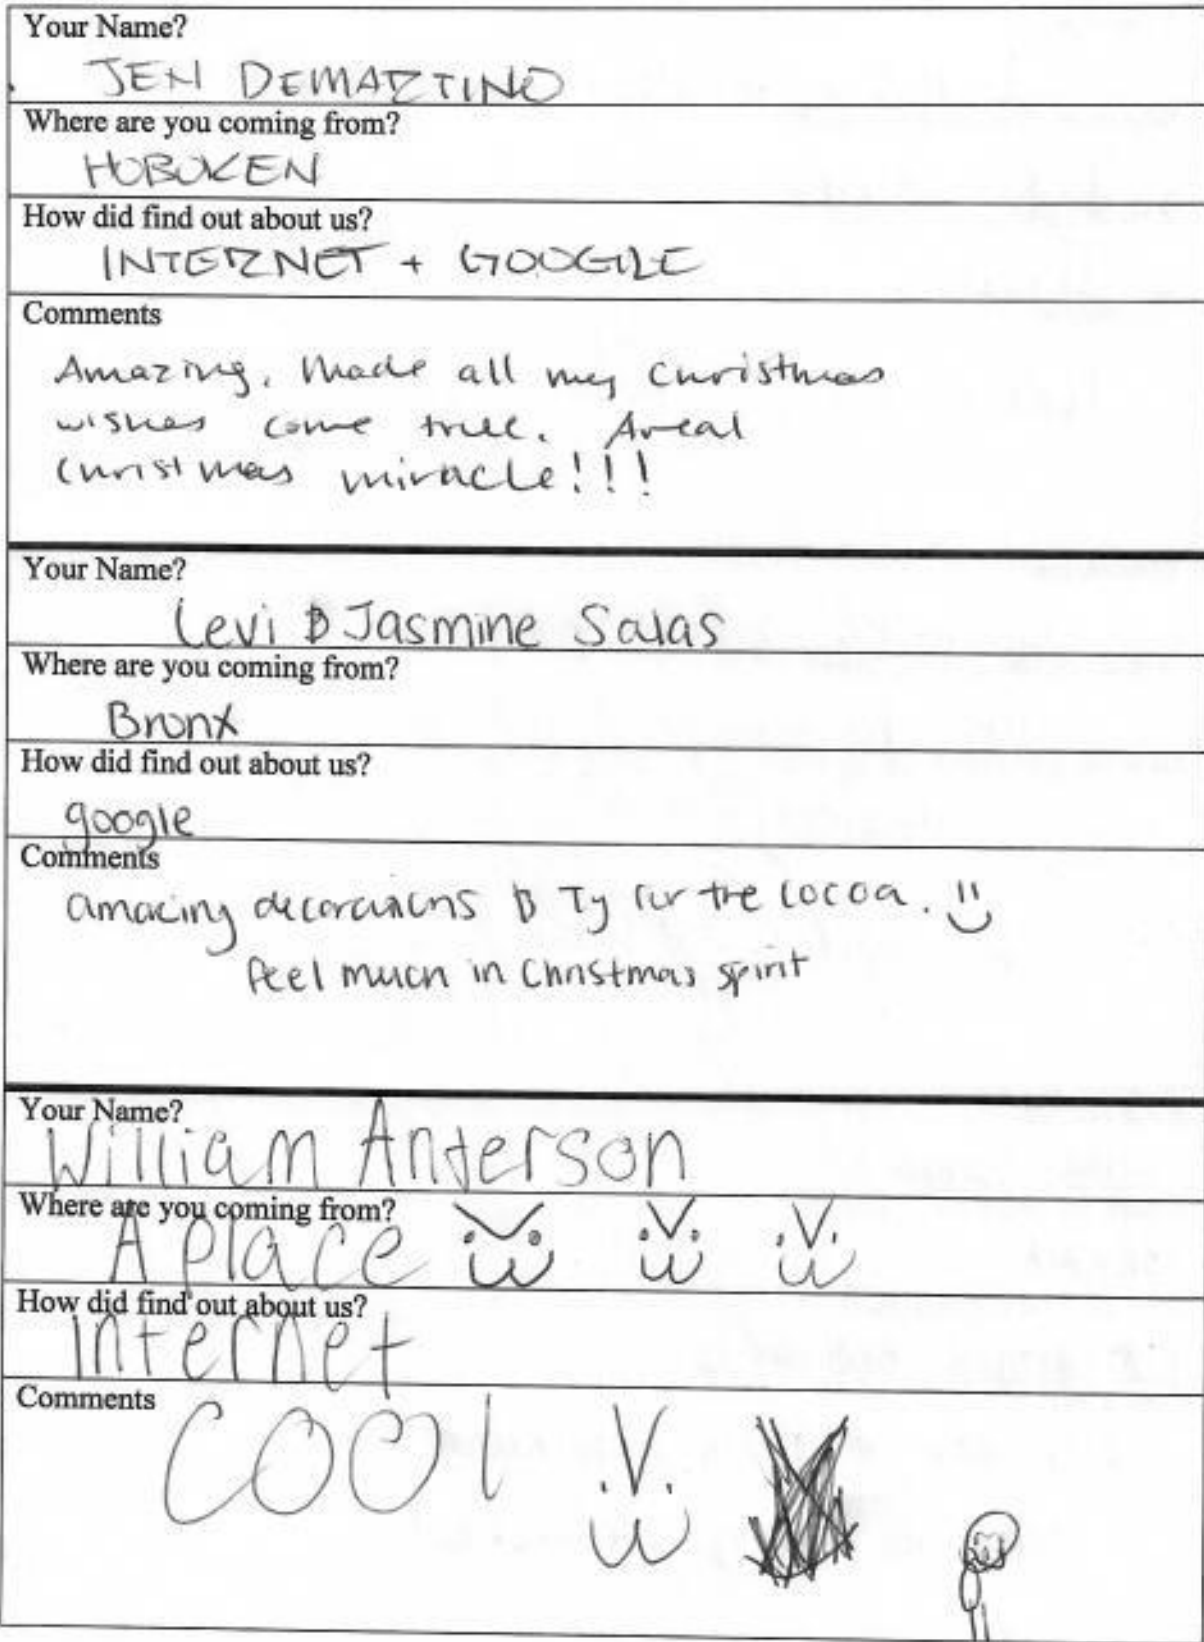 Your Name?
JEN DEMARTINO
Where are you coming from?
HOBOKEN
How did find out about us?
INTERNET + GOOGLE
Comments
Amazing. Made all my Christmas
wishes come true. A real
Christmas miracle!!!
Your Name?
Levi & Jasmine Salas
Where are you coming from?
Bronx
How did find out about us?
google
Comments
amazing decorations & Ty for the cocoa. :)
feel much in Christmas spirit
Your Name?
William Anterson
Where are you coming from?
A place
How did find out about us?
internet
Comments
cool